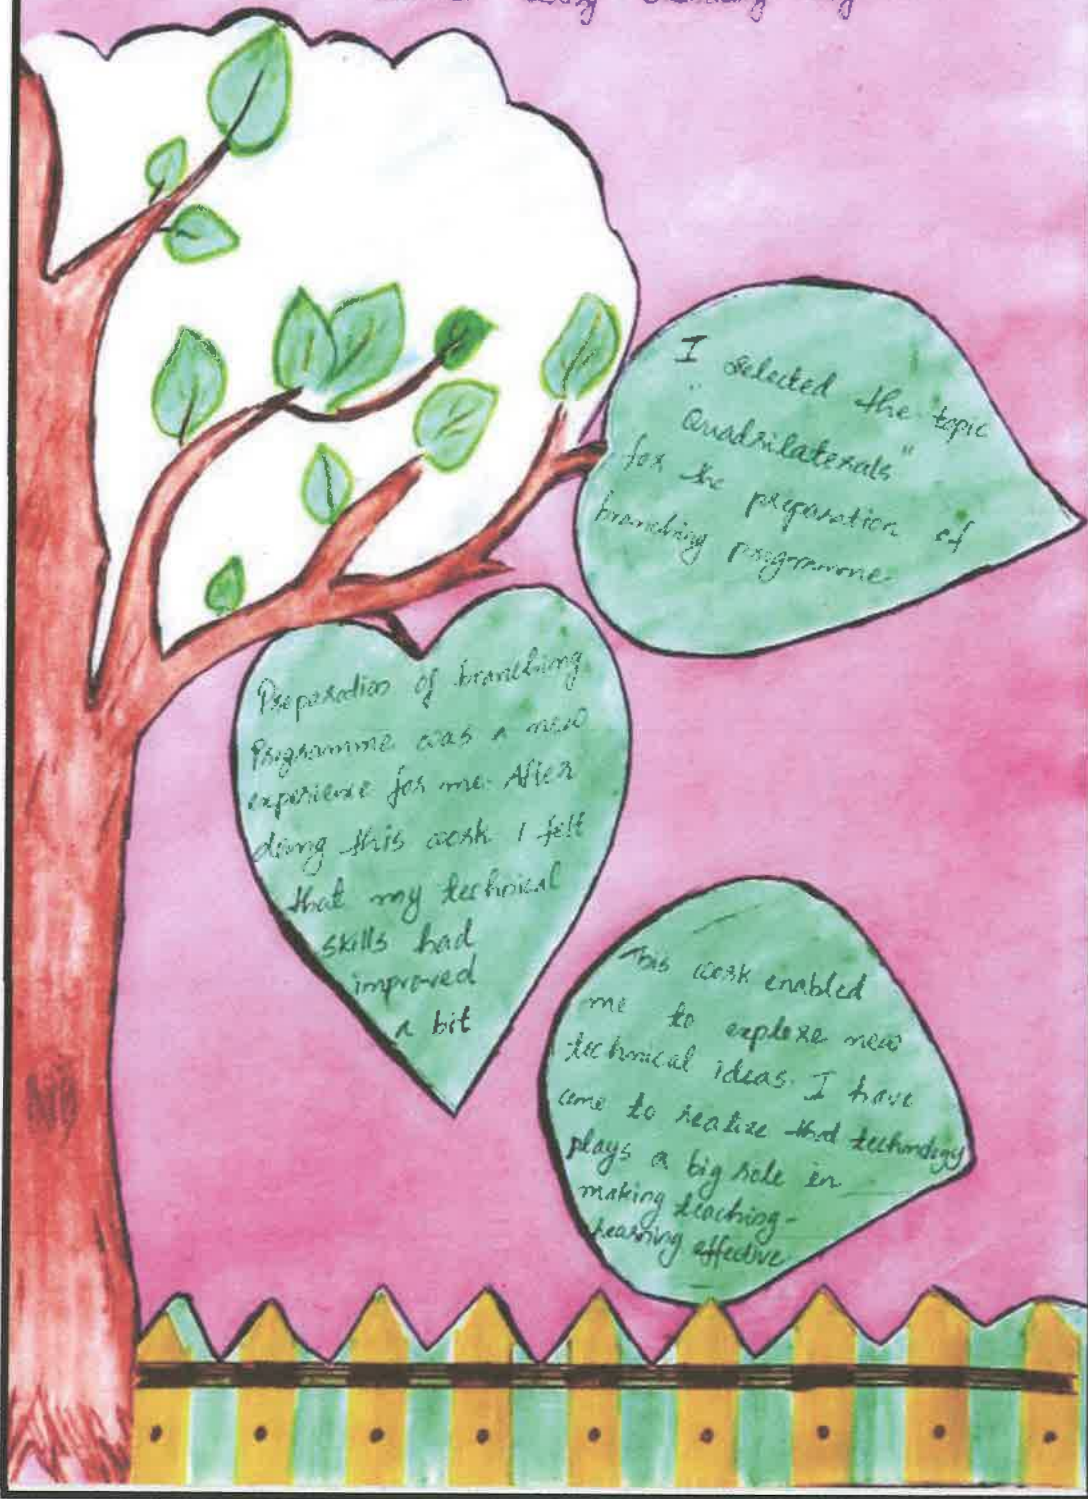 I selected the topic
"Quadrilaterals"
for the preparation of
branching programme
Preparation of branching
Programme was a new
experience for me. After
doing this work I felt
that my technical
skills had
improved
a bit
This work enabled
me to explore new
technical ideas. I have
come to realize that technology
plays a big role in
making teaching-
learning effective